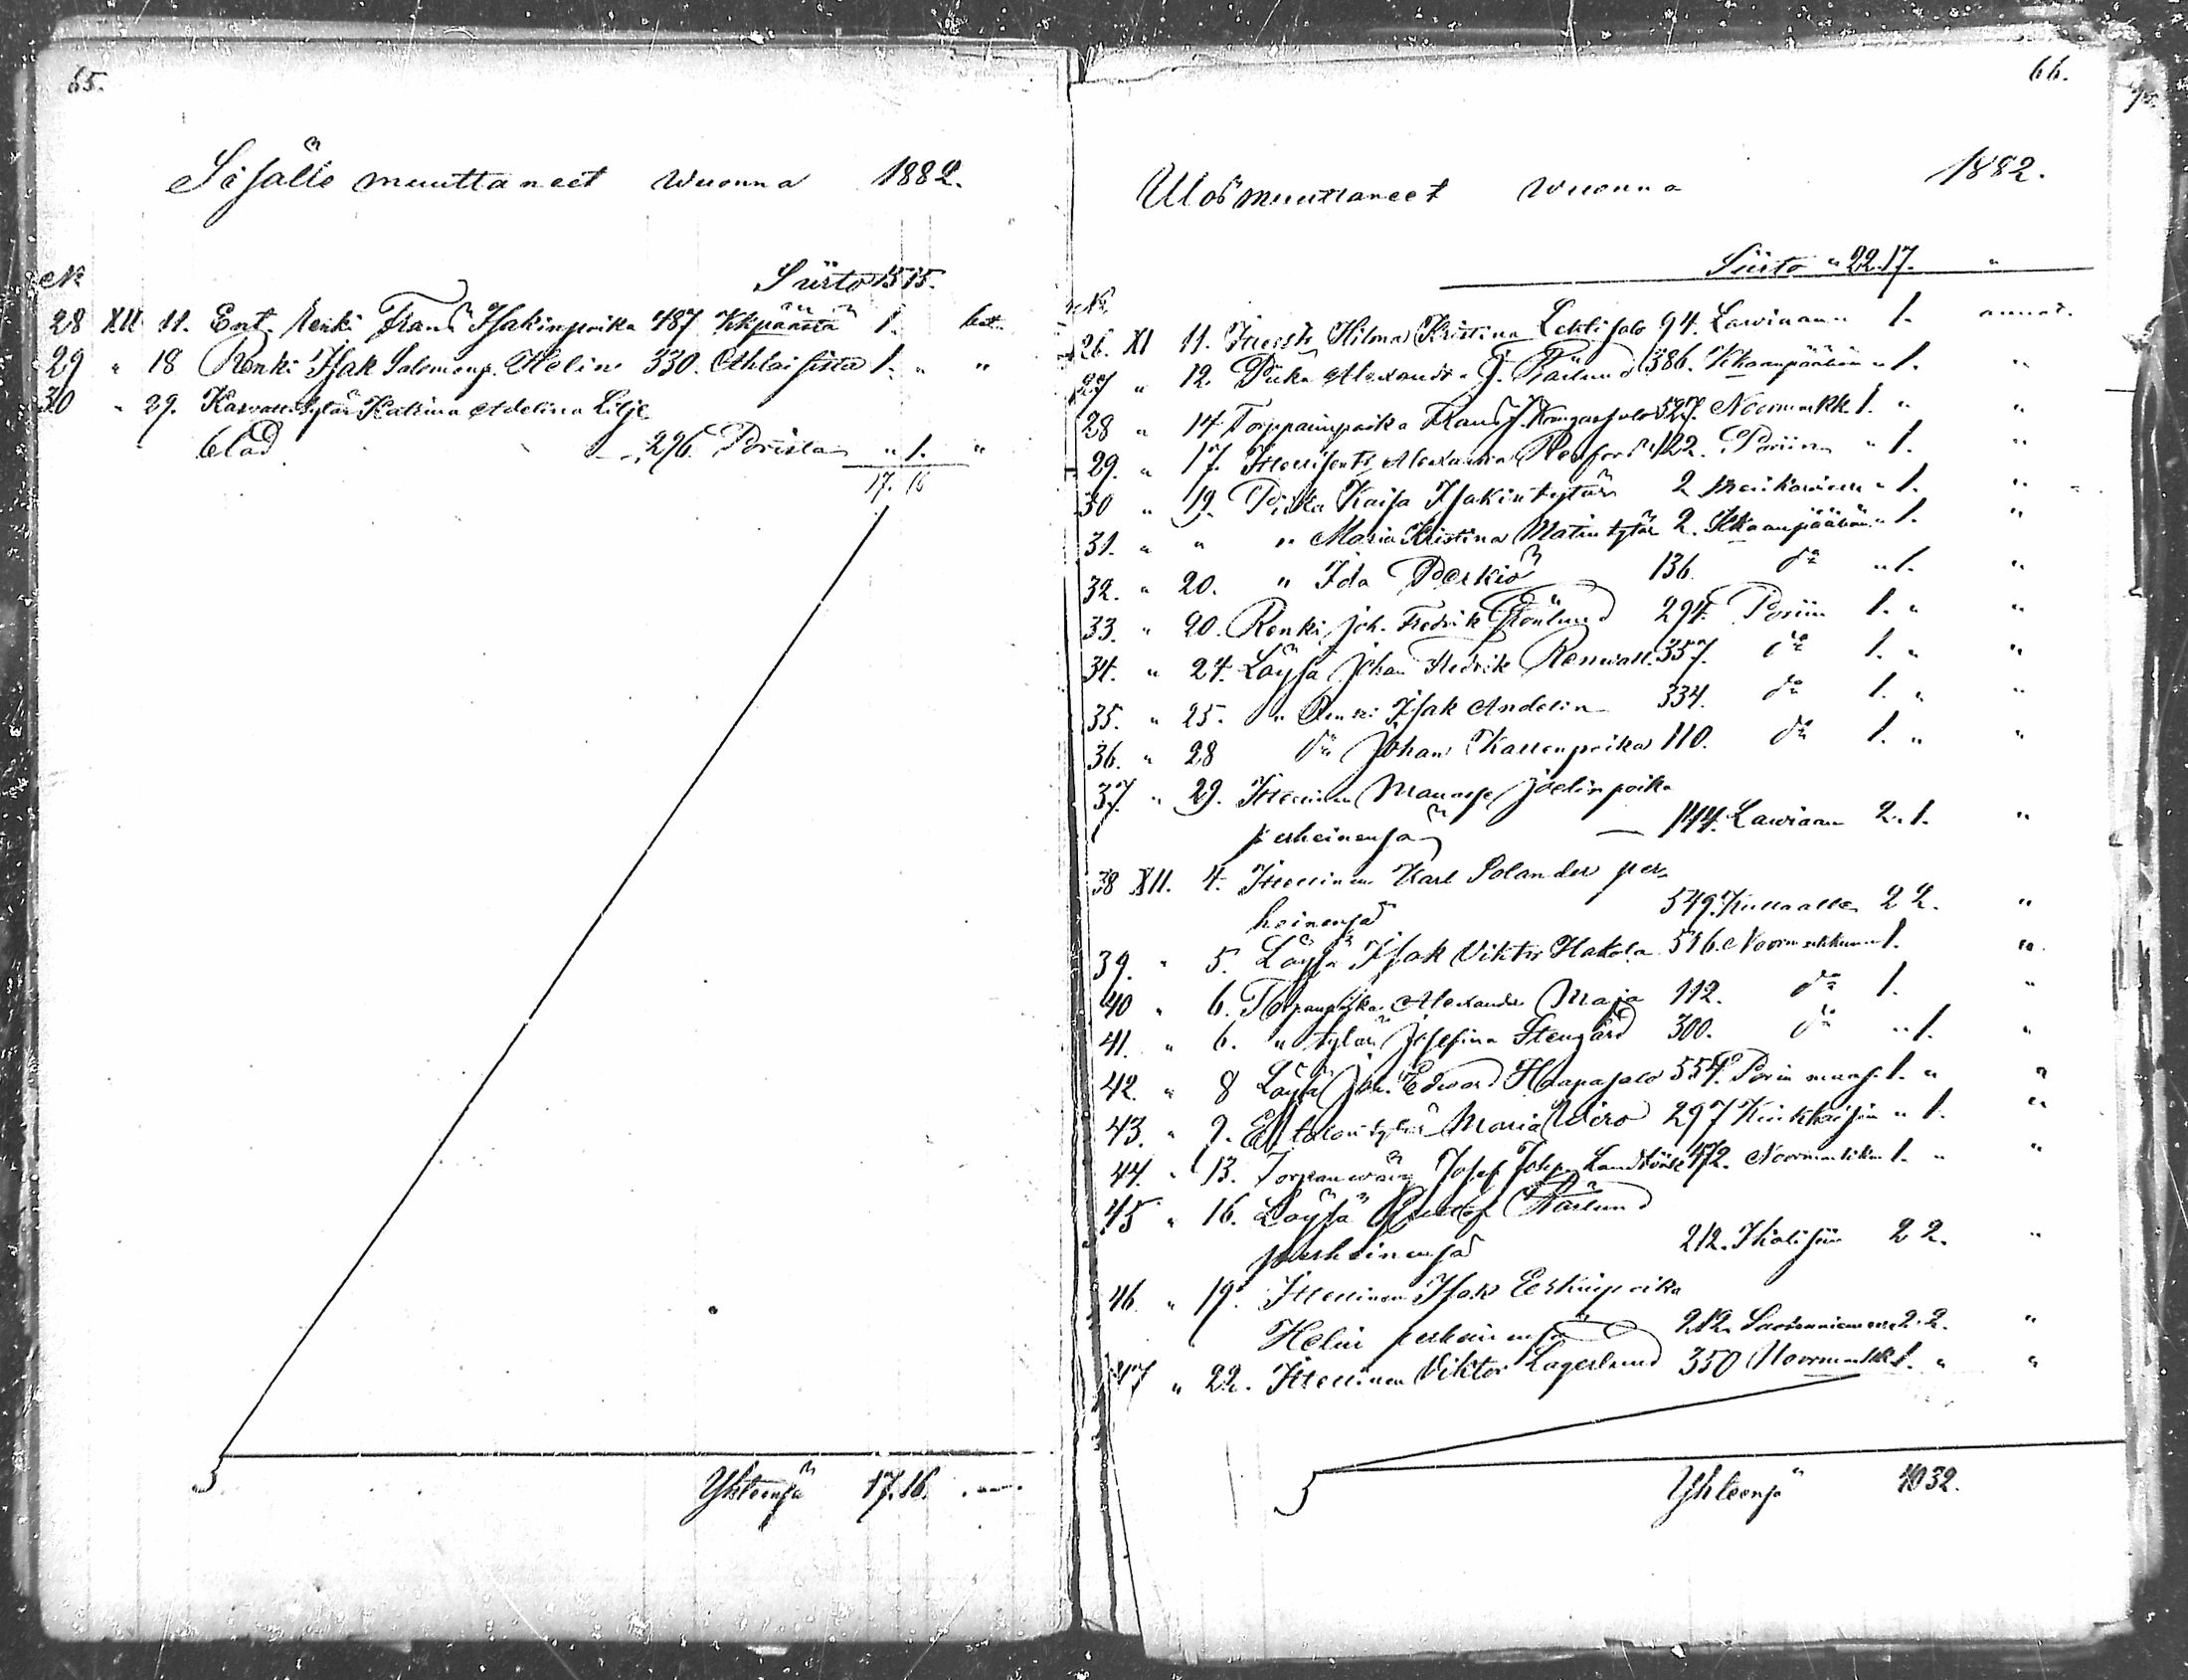 65.
Sisälle muuttaneet wuonna 1882.
No Siirto 15 15.
28 XII 11. Ent. Renki Frans Isakinpoika 487 Kkpäästä 1. " bet.
29 " 18 Renki Isak Salomonp. Helin 330. Ahlaisista 1. " "
30 " 29. Katrina Adelina Lilje
blad 296. Porista " 1. "
17. 16
Yhteensä 17. 16.
66.
Ulosmuuttaneet wuonna 1882.
Siirto " 22. 17. "
No
26. XI 11. Hilma Kristina Lehtisalo 94. Lawiaan " 1. annet.
27 " 12. Piika Alexandra J. 386. Kkaanpäähän " 1. "
28 " 14 Torpparinpoika Frans J. Kangassalo 527. Noormarkk 1. " "
29. " 17. Itsellisen t. Alexandra 122. Poriin " 1. "
30 " 19. Piika Kaisa Isakintytär 2 Merikarvialle " 1. "
31. " " " Maria Kristina Matintytär 2. Kkaanpäähän " 1. "
32. " 20. " Ida Perkiö 136. do " 1. "
33. " 20. Renki Joh. Fredrik Grönlund 294. Poriin 1. " "
34. " 24. Loysä Johan Fredrik Renwall 357. do 1. " "
35. " 25. " Renki Isak Andelin 334. do 1. " "
36. " 28 do Johan Kallenpoika 110. do 1. " "
37. " 29. Itsellinen Manasse Joelinpoika
perheinensä 144. Lawiaan 2. 1. "
38 XII. 4. Itsellinen Karl Polander per-
heinensä 549. Kullaalle 2 2. "
39. " 5. Loysä Isak Viktor Hakola 516. Noormarkkuun 1. "
40 " 6. Torpanpoika Alexander Maja 112. do 1. "
41. " 6. " tytär Josefina Stengård 300. do " 1. "
42. " 8 Loysä Joh. Edward Haapasalo 554. Porin maas. 1. " "
43. " 9. talontytär Maria Wiro 297 Kiukkaisiin " 1. "
44. " 13. Torpanwäwy Josef Johanp. 472. Noormarkkuun 1. " "
45 " 16. Loysä Gustaf
perheinensä 212. Ikalisiin 2 2. "
46. " 19. Itsellinen Isak Eerkinpoika
Helin perheinensä 212. 2. 2. "
47 " 22. Itsellinen Viktor Lagerlund 350 Noormarkk 1. " "
Yhteensä 40 32.